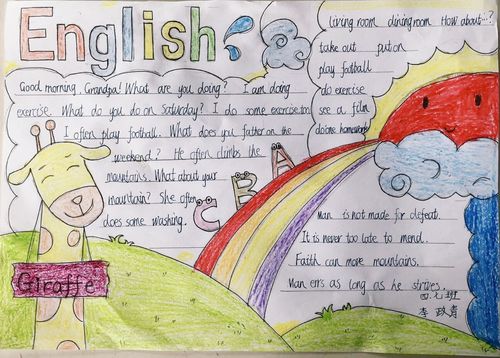 English
Good morning, Grandpa! What are you doing? I am doing
exercise. What do you do on Saturday? I do some exercise. too
I often play football. What does you father on the
weekend? He often climbs the
mountains. What about your
mountain? She often
does some washing.
C B A
Giraffe
living room dining room How about…?
take out put on
play football
do exercise
see a film
do homework
Man is not made for defeat.
It is never too late to mend.
Faith can move mountains.
Man errs as long as he strives.
四.七班
李政青